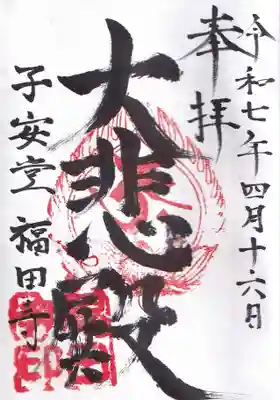 奉拝
令和七年四月十六日
大悲心殿
子安堂 福田寺